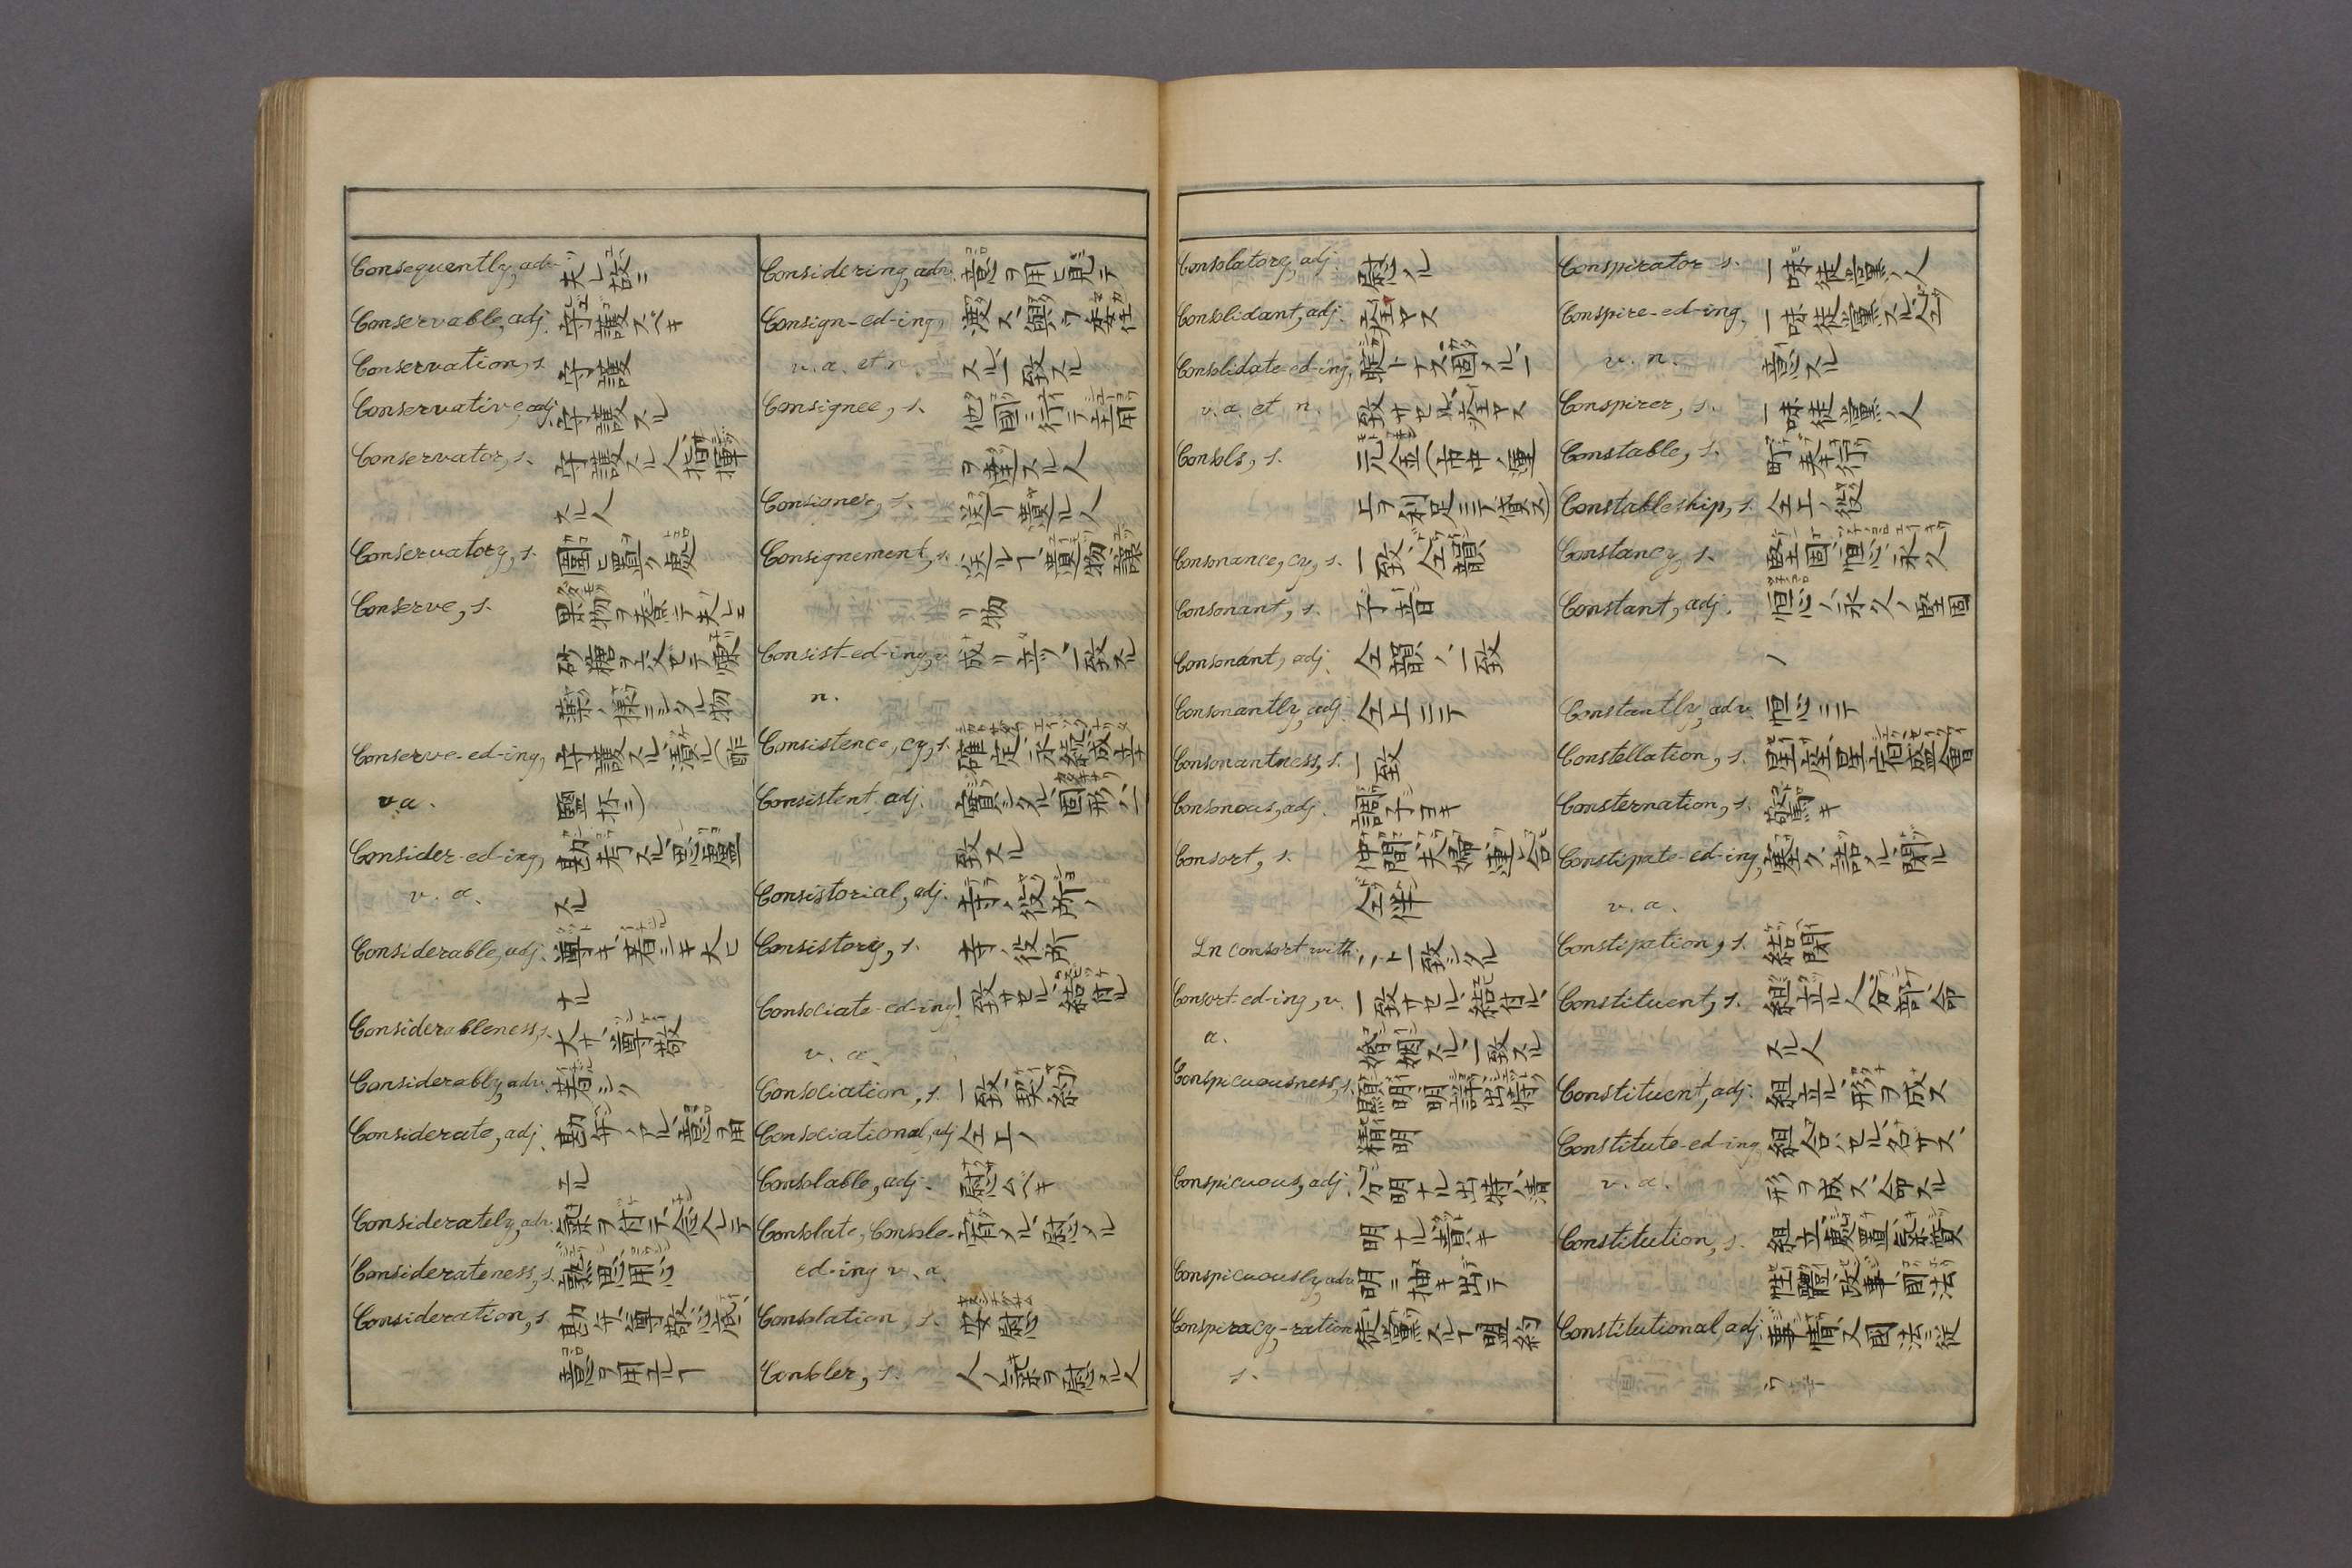 Consequently, adv. 夫レ故ニ
Conservable, adj. 守護スベキ
Conservation, s. 守護
Conservative, adj. 守護スル
Conservator, s. 守護スル人、指揮
スル人
Conservatory, s. 圍ヒ置ク處
Conserve, s. 果物ヲ
砂糖ヲ
物
Conserve-ed-ing, 守護スル、漬ル
v a.
Consider-ed-ing, 勘考スル、思慮
v. a. スル
Considerable, adj. 尊キ、著シキ、大ヒ
ナル
Considerableness, s. 大サ、尊敬
Considerably, adv. 著シク
Considerate, adj. 勘弁ノアル、意ヲ用
ユル
Considerately, adv. 氣ヲ付テ、念入レテ
Considerateness, s. 熟思、用心
Consideration, s. 勘弁、尊敬
意ヲ用ユルヿ
Considering, adv. 意ヲ用ヒ見テ
Consign-ed-ing, 渡ス、與フ、委任
v. a. et n. スル、一致スル
Consignee, s. 他國ニ行テ
ヲ達スル人
Consigner, s. 送リ遣ル人
Consignement, s. 送ルヿ
物
Consist-ed-ing, v. 成リ立ツ、一致スル
n.
Consistence, cy, s. 確定、永續、成立
Consistent adj. 實シタル、固形ノ、一
致スル
Consistorial, adj. 寺ノ役所ノ
Consistory, s. 寺ノ役所
Consociate-ed-ing, 一致サセル、結付ル
v. a.
Consociation, s. 一致、契約
Consociational, adj 仝上ノ
Consolable, adj. 慰ムベキ
Consolate, Console- 宥メル、慰メル
ed-ing v. a.
Consolation, s. 安慰
Conbler, s. 人ノ氣ヲ慰メル人
Consolatory, adj. 慰メル
Consolidant, adj. 癒ヤス
Consolidate-ed-ing, 固メル、一
v. a. et n. 致サセル、癒ヤス
Consols, s. 元金(市中ノ運
上ヲ利足ニテ償ス)
Consonance, cy, s. 一致、仝韻
Consonant, s. 子音
Consonant, adj. 仝韻ノ、一致
Consonantly, adj. 仝上ニテ
Consonantness, s. 一致
Consonous, adj. 調子ヨキ
Consort, s. 仲間、夫婦、連合
仝伴
Ln consort with. …ト一致シタル
Consort-ed-ing, v. 一致サセル、結付ル、
a. 婚姻スル、一致スル
Conspicuousness, s. 顯明、明詳、出将
精明
Conspicuous, adj. 分明ナル、出将ノ、清
明ナル、貴キ
Conspicuously, adv. 明ニ、抽キ出テ
Conspiracy-ration 徒黨スルヿ、盟約
s.
Conspirator s. 一味徒黨ノ人
Conspire-ed-ing, 一味徒黨スル、仝
v. n. 意スル
Conspirer, s. 一味徒黨ノ人
Constable, s. 町奉行
Constableship, s. 仝上ノ役
Constancy, s. 堅固、恒心、永久
Constant, adj. 恒心ノ、永久ノ、堅固
ノ
Constantly, adv. 恒心ニテ
Constellation, s. 星座、星宿、盛會
Consternation, s. 驚キ
Constipate-ed-ing, 塞ク、詰メル、閉ル
v. a.
Constipation, s. 結閉
Constituent, s. 組立ル人、分部、命
スル人
Constituent, adj. 組立ル、形ヲ成ス
Constitute-ed-ing, 組合セル、名サス、
v. a. 形ヲ成ス、命スル
Constitution, s. 組立、處置、氣質
性體、政事、國法
Constitutional, adj. 事情、又國法ニ従
ウ